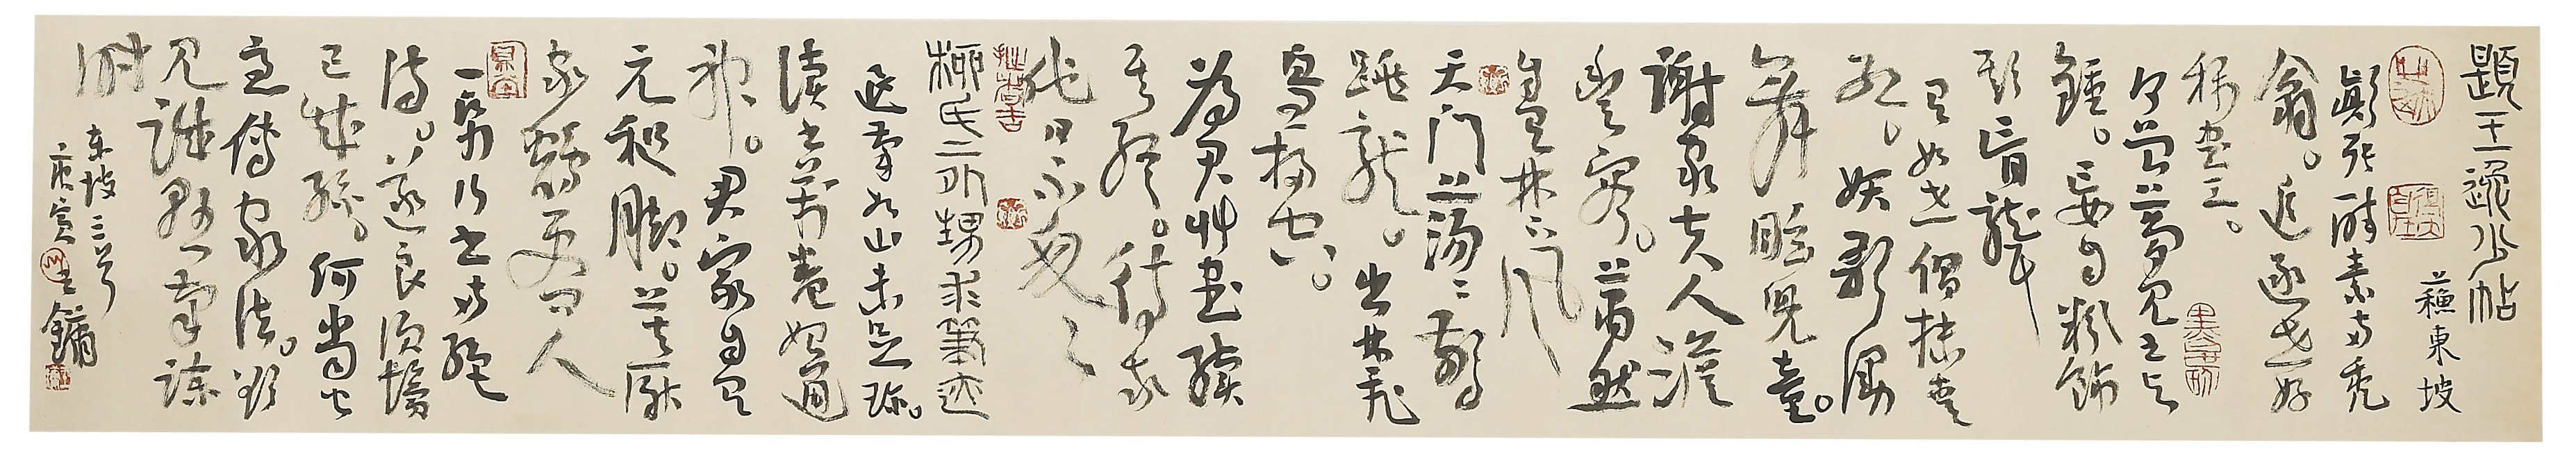 題王逸少帖
蘓東坡
顛張醉素兩禿
翁。追逐世好
稱書工。
何曾夢見王与
鍾。妄自粉飾
欺盲聾
有如市倡抹青
紅。妖歌嫚
舞眩兒童。
謝家夫人澹
豐容。蕭然
自有林下風
天门蕩々驚
跳龍。出林飛
鳥一掃空。
為君艸書續
其終。待我
他日不匆々
柳氏二外甥求筆迹
退筆如山未足珍。
讀書萬卷始通
神。君家自有
元和脚。莫厭
家鷄更问人
一紙行書兩絕
詩。遂良鬚鬢
已成絲。何當火
急傳家法。欲
見誠懸筆諫
時
东坡二首
庚寅 王鏞